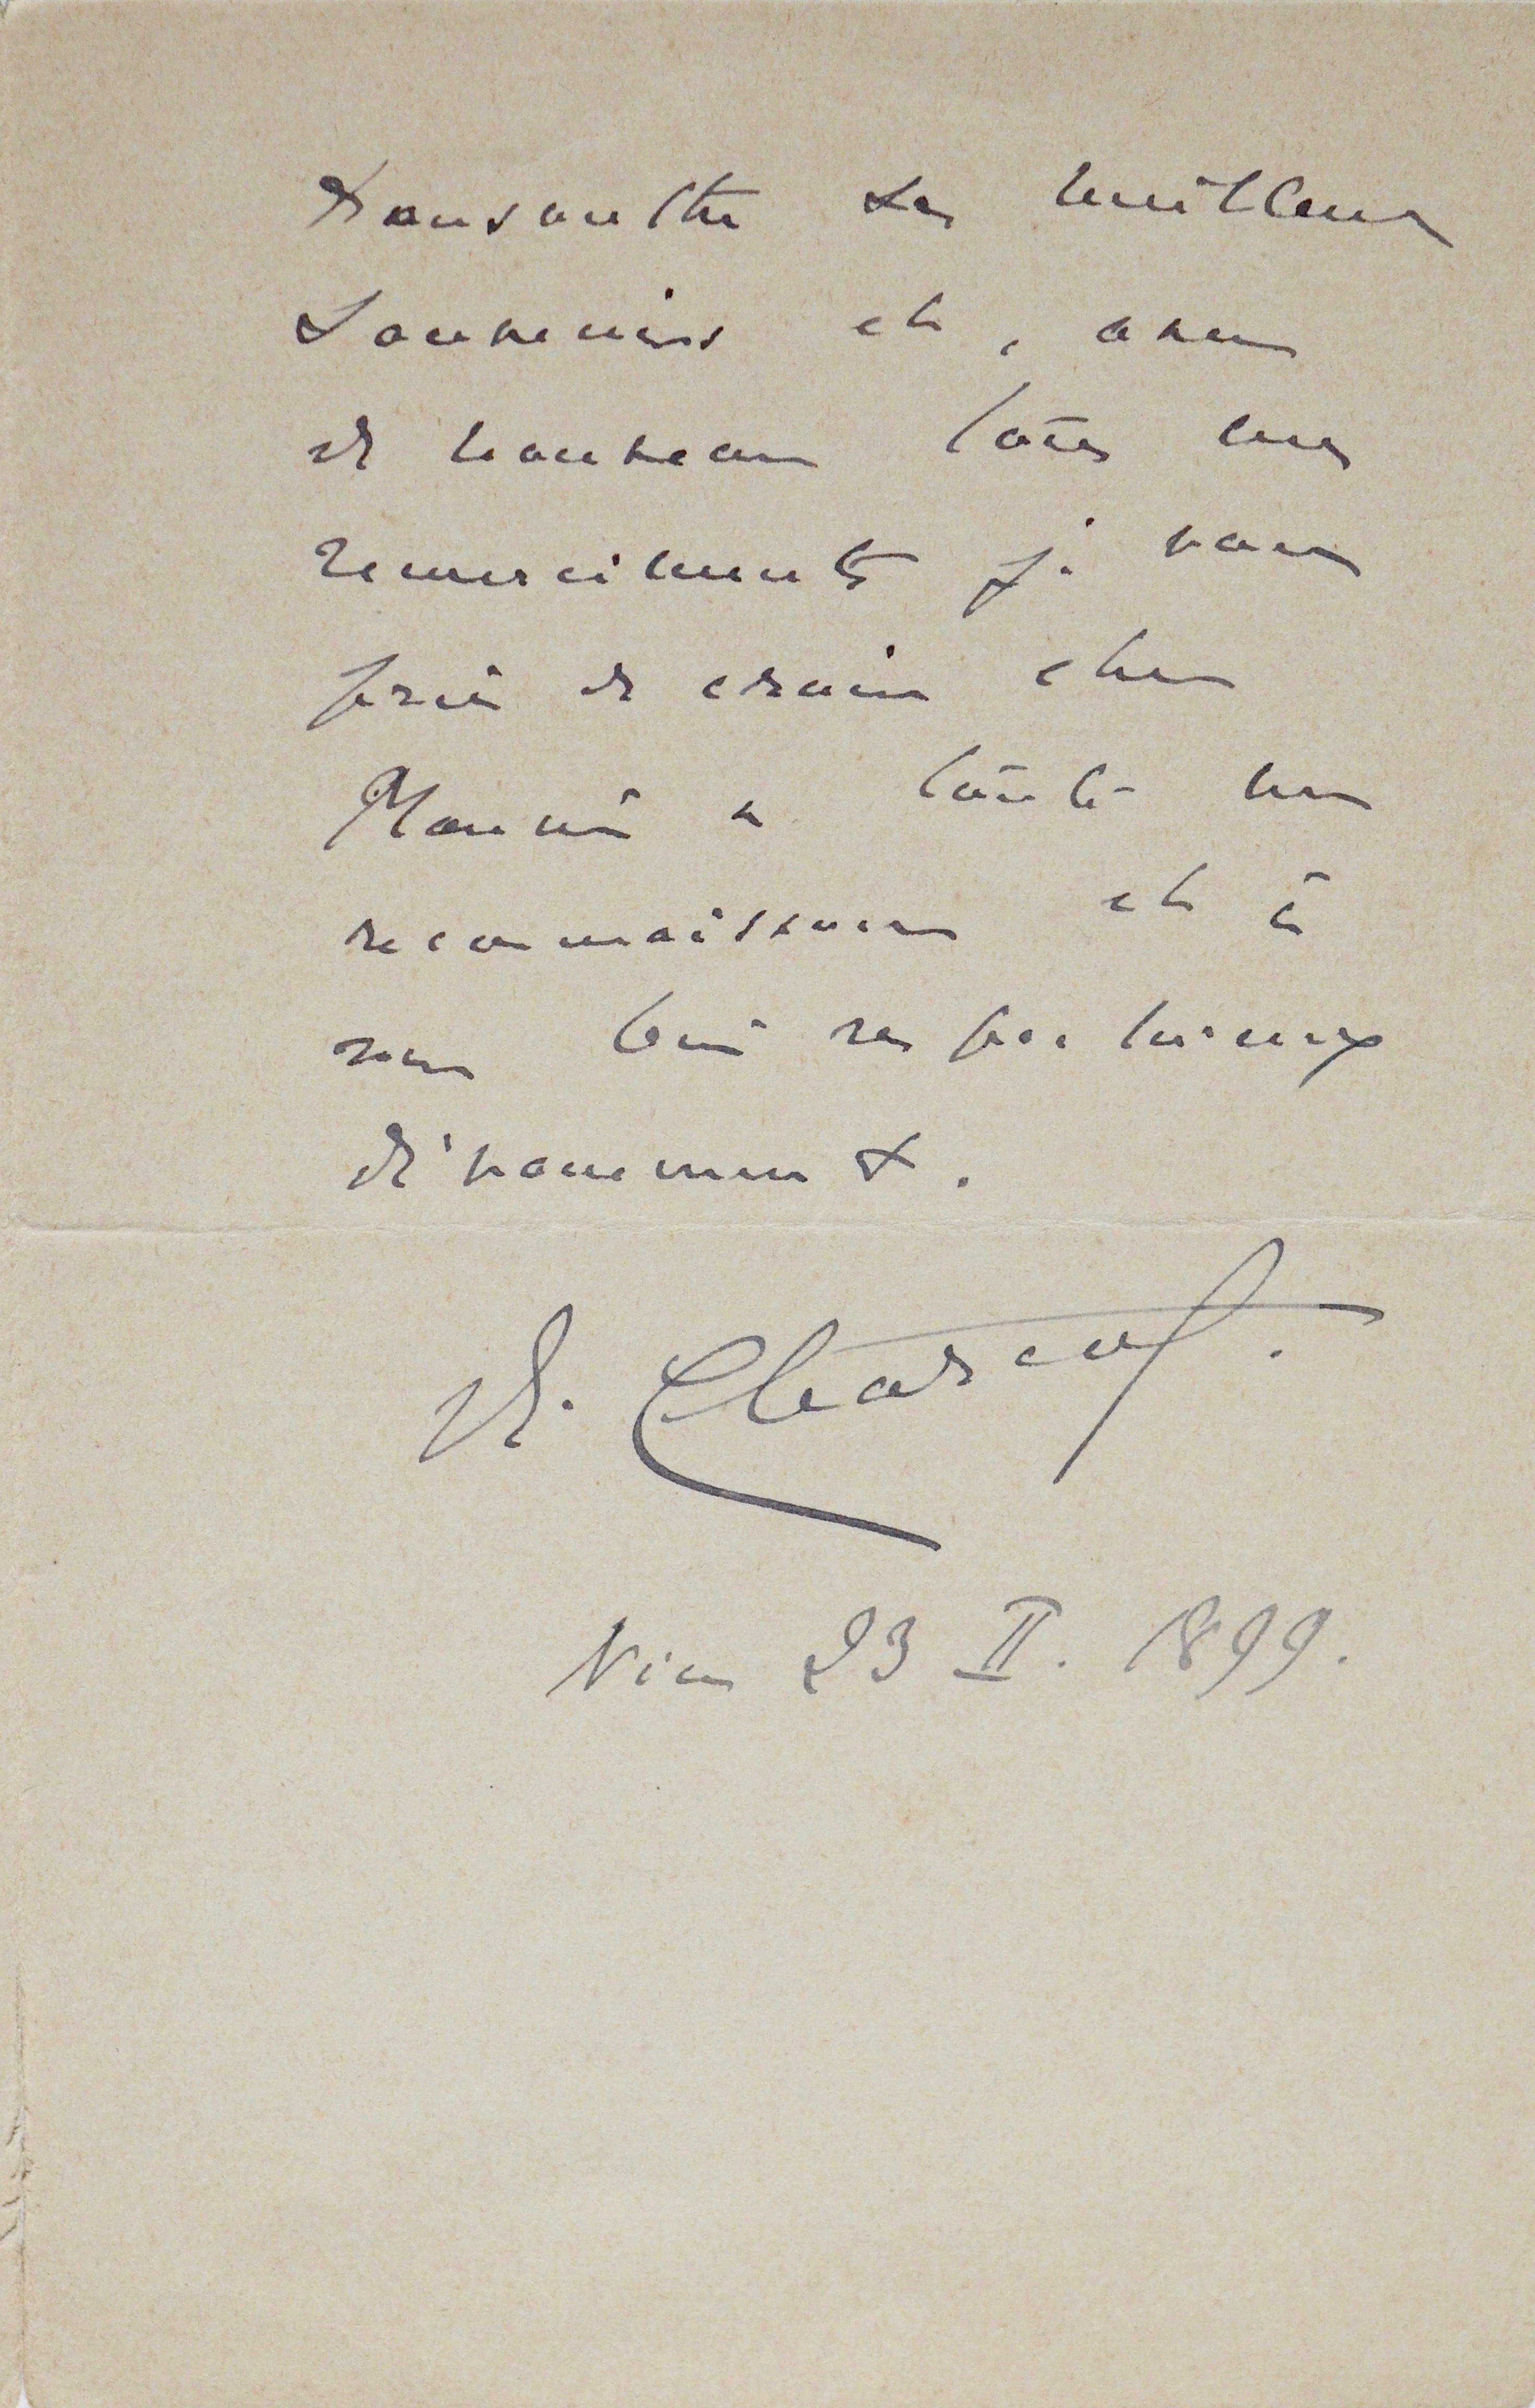 transmettre ses meilleurs
souvenirs et, avec
de nouveau tous mes
remerciments je vous
prie de croire cher
à toute ma
reconnaissance et à
mon bien respectueux
dévouement.
Dr. Charcot.
Nice 23 II. 1899.